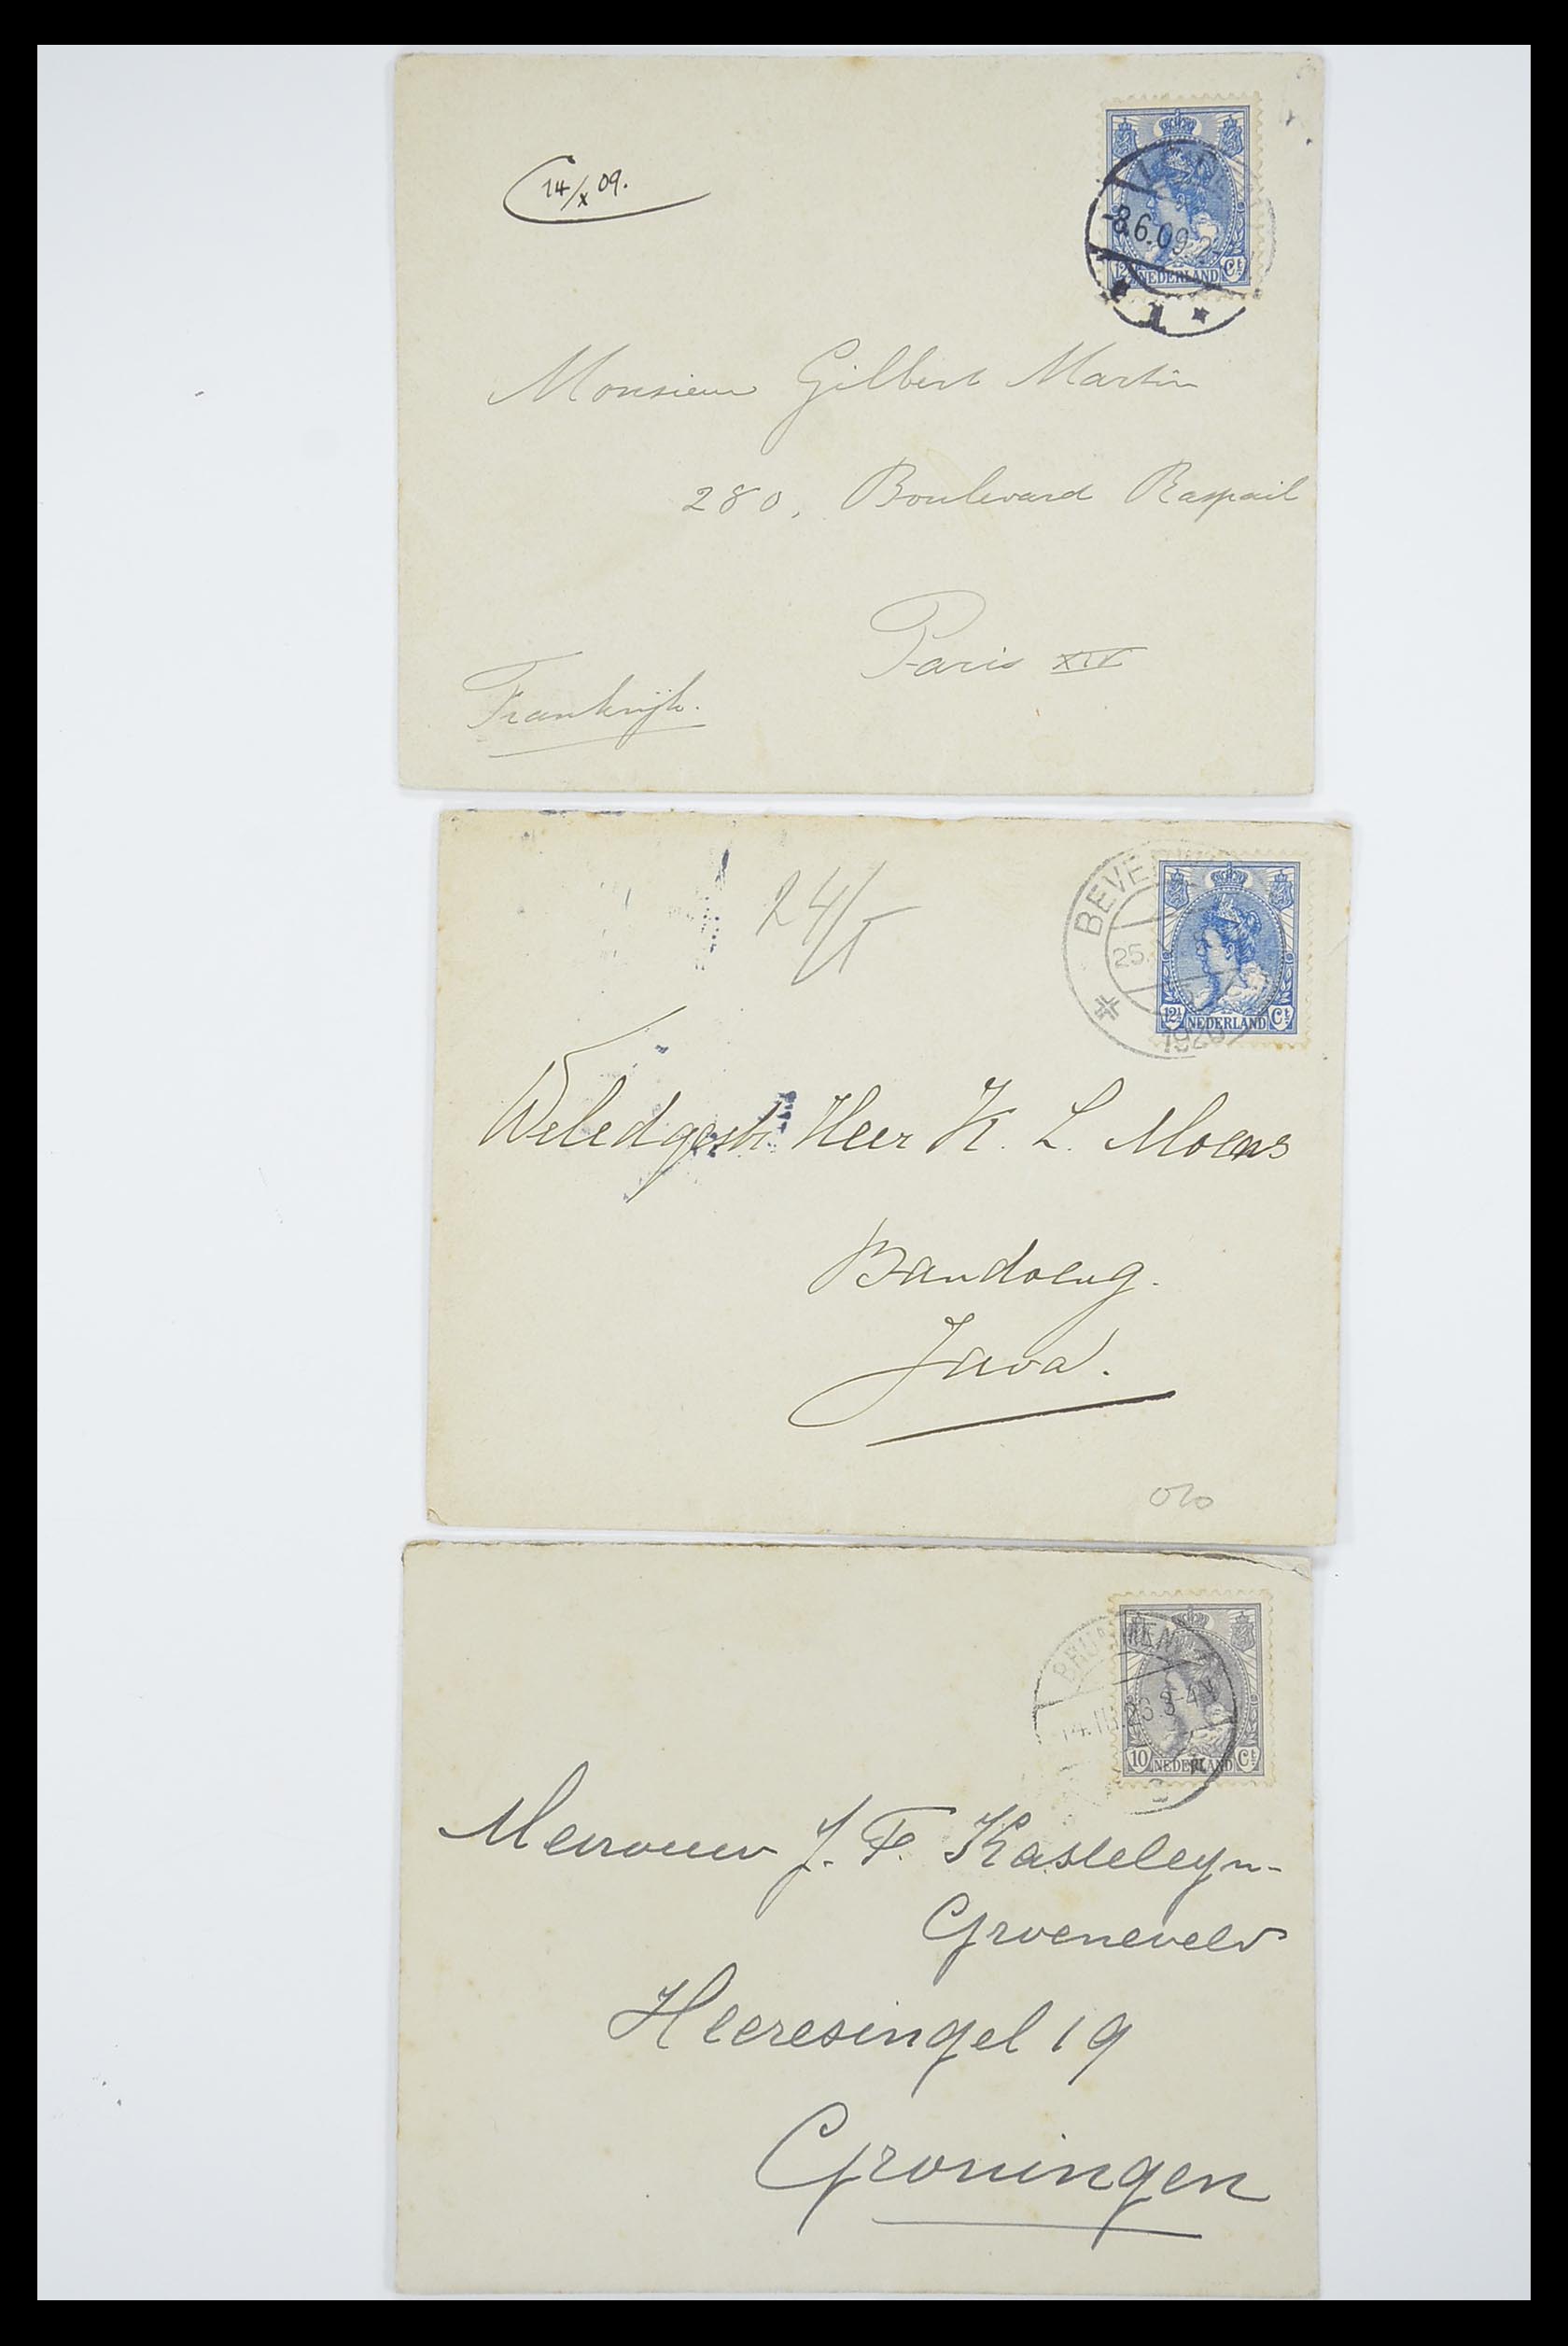 14/X 09.
-8.6.09
12½ NEDERLAND Ct
1
Monsieur Gilbert Martin
280, Boulevard Raspail
Paris XIV
Frankrijk.
24/5
BEVE
25.
1920
12½ NEDERLAND Ct
Weledgestr Heer K. L. Moens
Bandoeng.
Java.
BRUMMEN
14.III.26.3-4N
10 NEDERLAND Ct
Mevrouw J. F. Kasteleyn-
Groeneveld
Heeresingel 19
Groningen